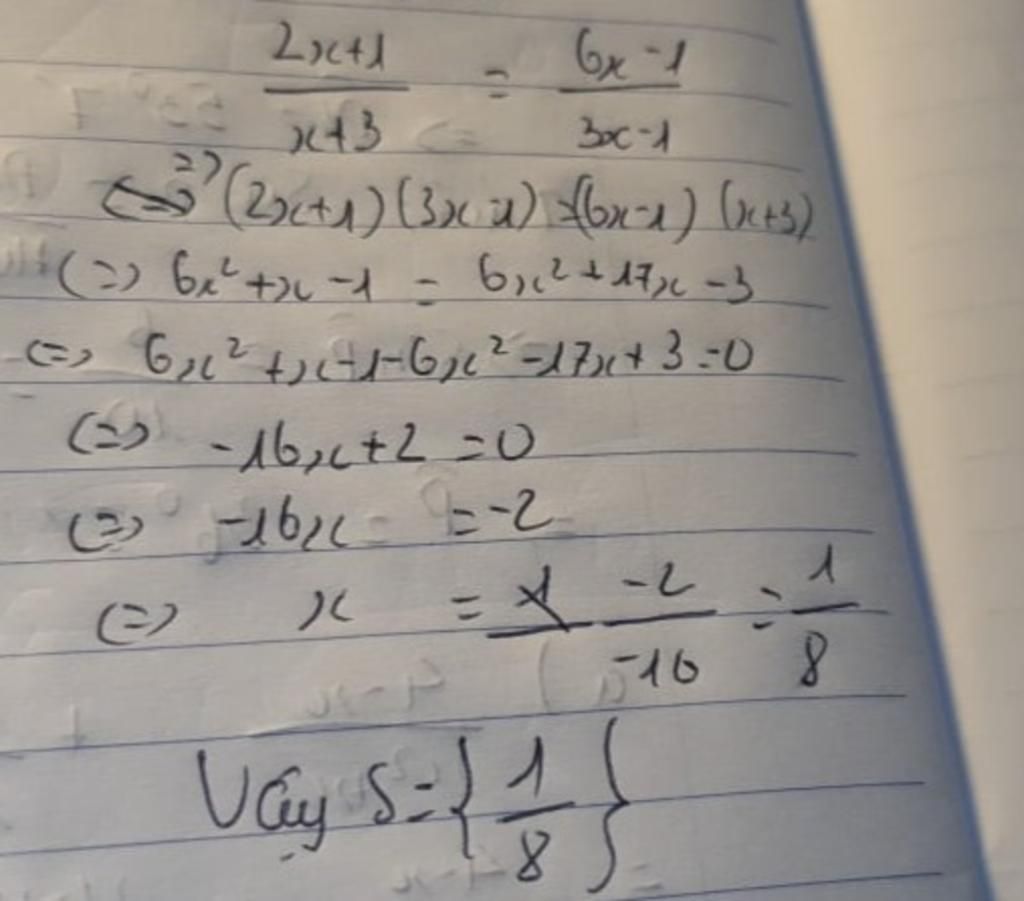 2x+1 / x+3 = 6x-1 / 3x-1
=> (2x+1)(3x-1)=(6x-1)(x+3)
(=) 6x² +x -1 = 6x² + 17x -3
<=> 6x² +x-1-6x²-17x+3=0
(=) -16x+2 =0
(=) -16x =-2
(=) x = -2 / -16 = 1 / 8
Vậy S={1/8}